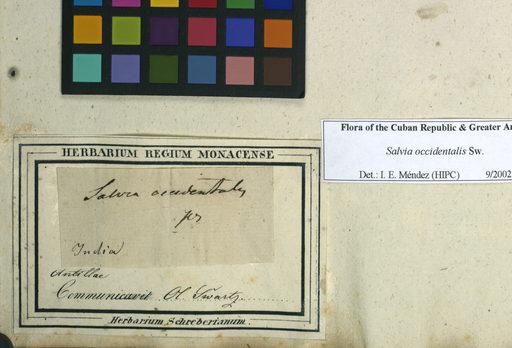 HERBARIUM REGIUM MONACENSE
Salvia occidentalis
India
Antillae
Communicavit Ol. Swartz
Herbarium Schreberianum.
Flora of the Cuban Republic & Greater An
Salvia occidentalis Sw.
Det.: I. E. Méndez (HIPC) 9/2002